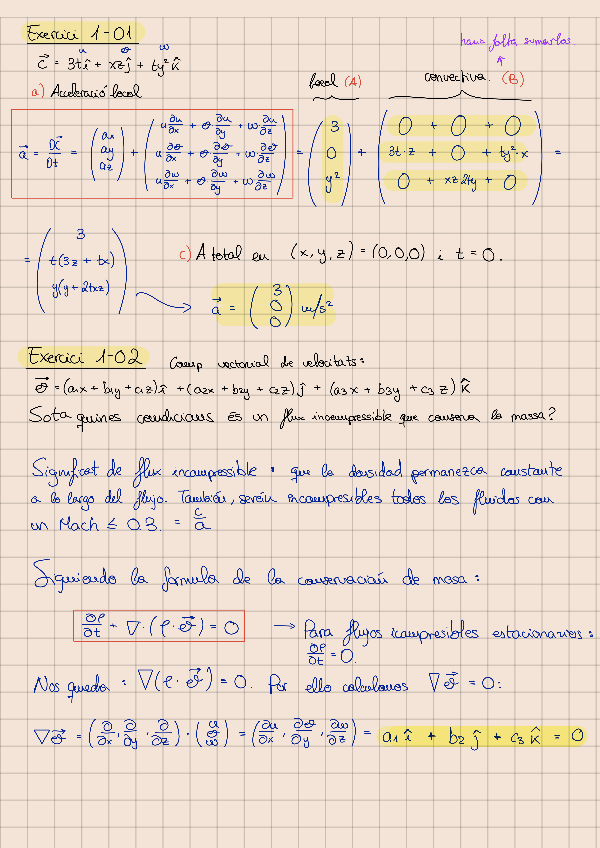 Exercici 1-01
haría falta sumarlos.
u v w
c⃗ = 3t î + xz ĵ + ty² k̂
local (A) convectiva (B)
a) Acceleració local
a⃗ = Dc⃗/Dt = (ax ay az) + (u ∂u/∂x + v ∂u/∂y + w ∂u/∂z
u ∂v/∂x + v ∂v/∂y + w ∂v/∂z
u ∂w/∂x + v ∂w/∂y + w ∂w/∂z) = (3 0 y²) + (0 + 0 + 0
3t·z + 0 + ty²·x
0 + xz2ty + 0) =
= (3
t(3z + tx)
y(y + 2txz))
c) A total en (x, y, z) = (0,0,0) i t = 0.
a⃗ = (3 0 0) m/s²
Exercici 1-02 Camp vectorial de velocitats:
v⃗ = (a1x + b1y + c1z) î + (a2x + b2y + c2z) ĵ + (a3x + b3y + c3z) k̂
Sota quines condicions és un flux incompressible que conserva la massa?
Significat de flux incompressible: que la densidad permanezca constante
a lo largo del flujo. También, serán incompresibles todos los fluidos con
un Mach ≤ 0.3. = c/a
Siguiendo la fórmula de la conservación de masa:
∂ρ/∂t + ∇·(ρ·v⃗) = 0 → Para flujos icompresibles estacionarios:
∂ρ/∂t = 0.
Nos queda: ∇(ρ·v⃗) = 0. Por ello calculamos ∇v⃗ = 0:
∇v⃗ = (∂/∂x, ∂/∂y, ∂/∂z) · (u v w) = (∂u/∂x, ∂v/∂y, ∂w/∂z) = a1 î + b2 ĵ + c3 k̂ = 0